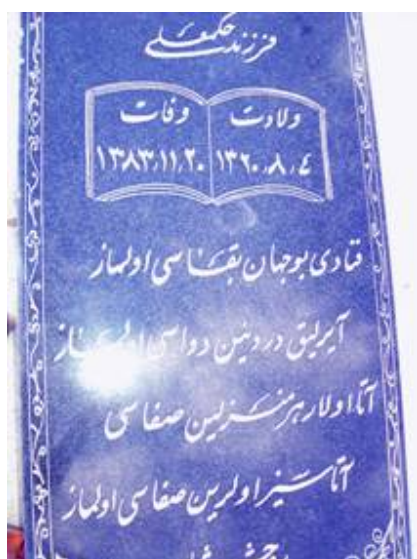 فرزند حکمعلی
ولادت وفات
۱۳۲۰,۸,۴ ۱۳۸۳,۱۱,۲۰
فنادی بوجهان بقاسی اولماز
آیریلیق دردینین دواسی اولماز
آتا اولار هر منزلین صفاسی
آتاسیز اولرین صفاسی اولماز